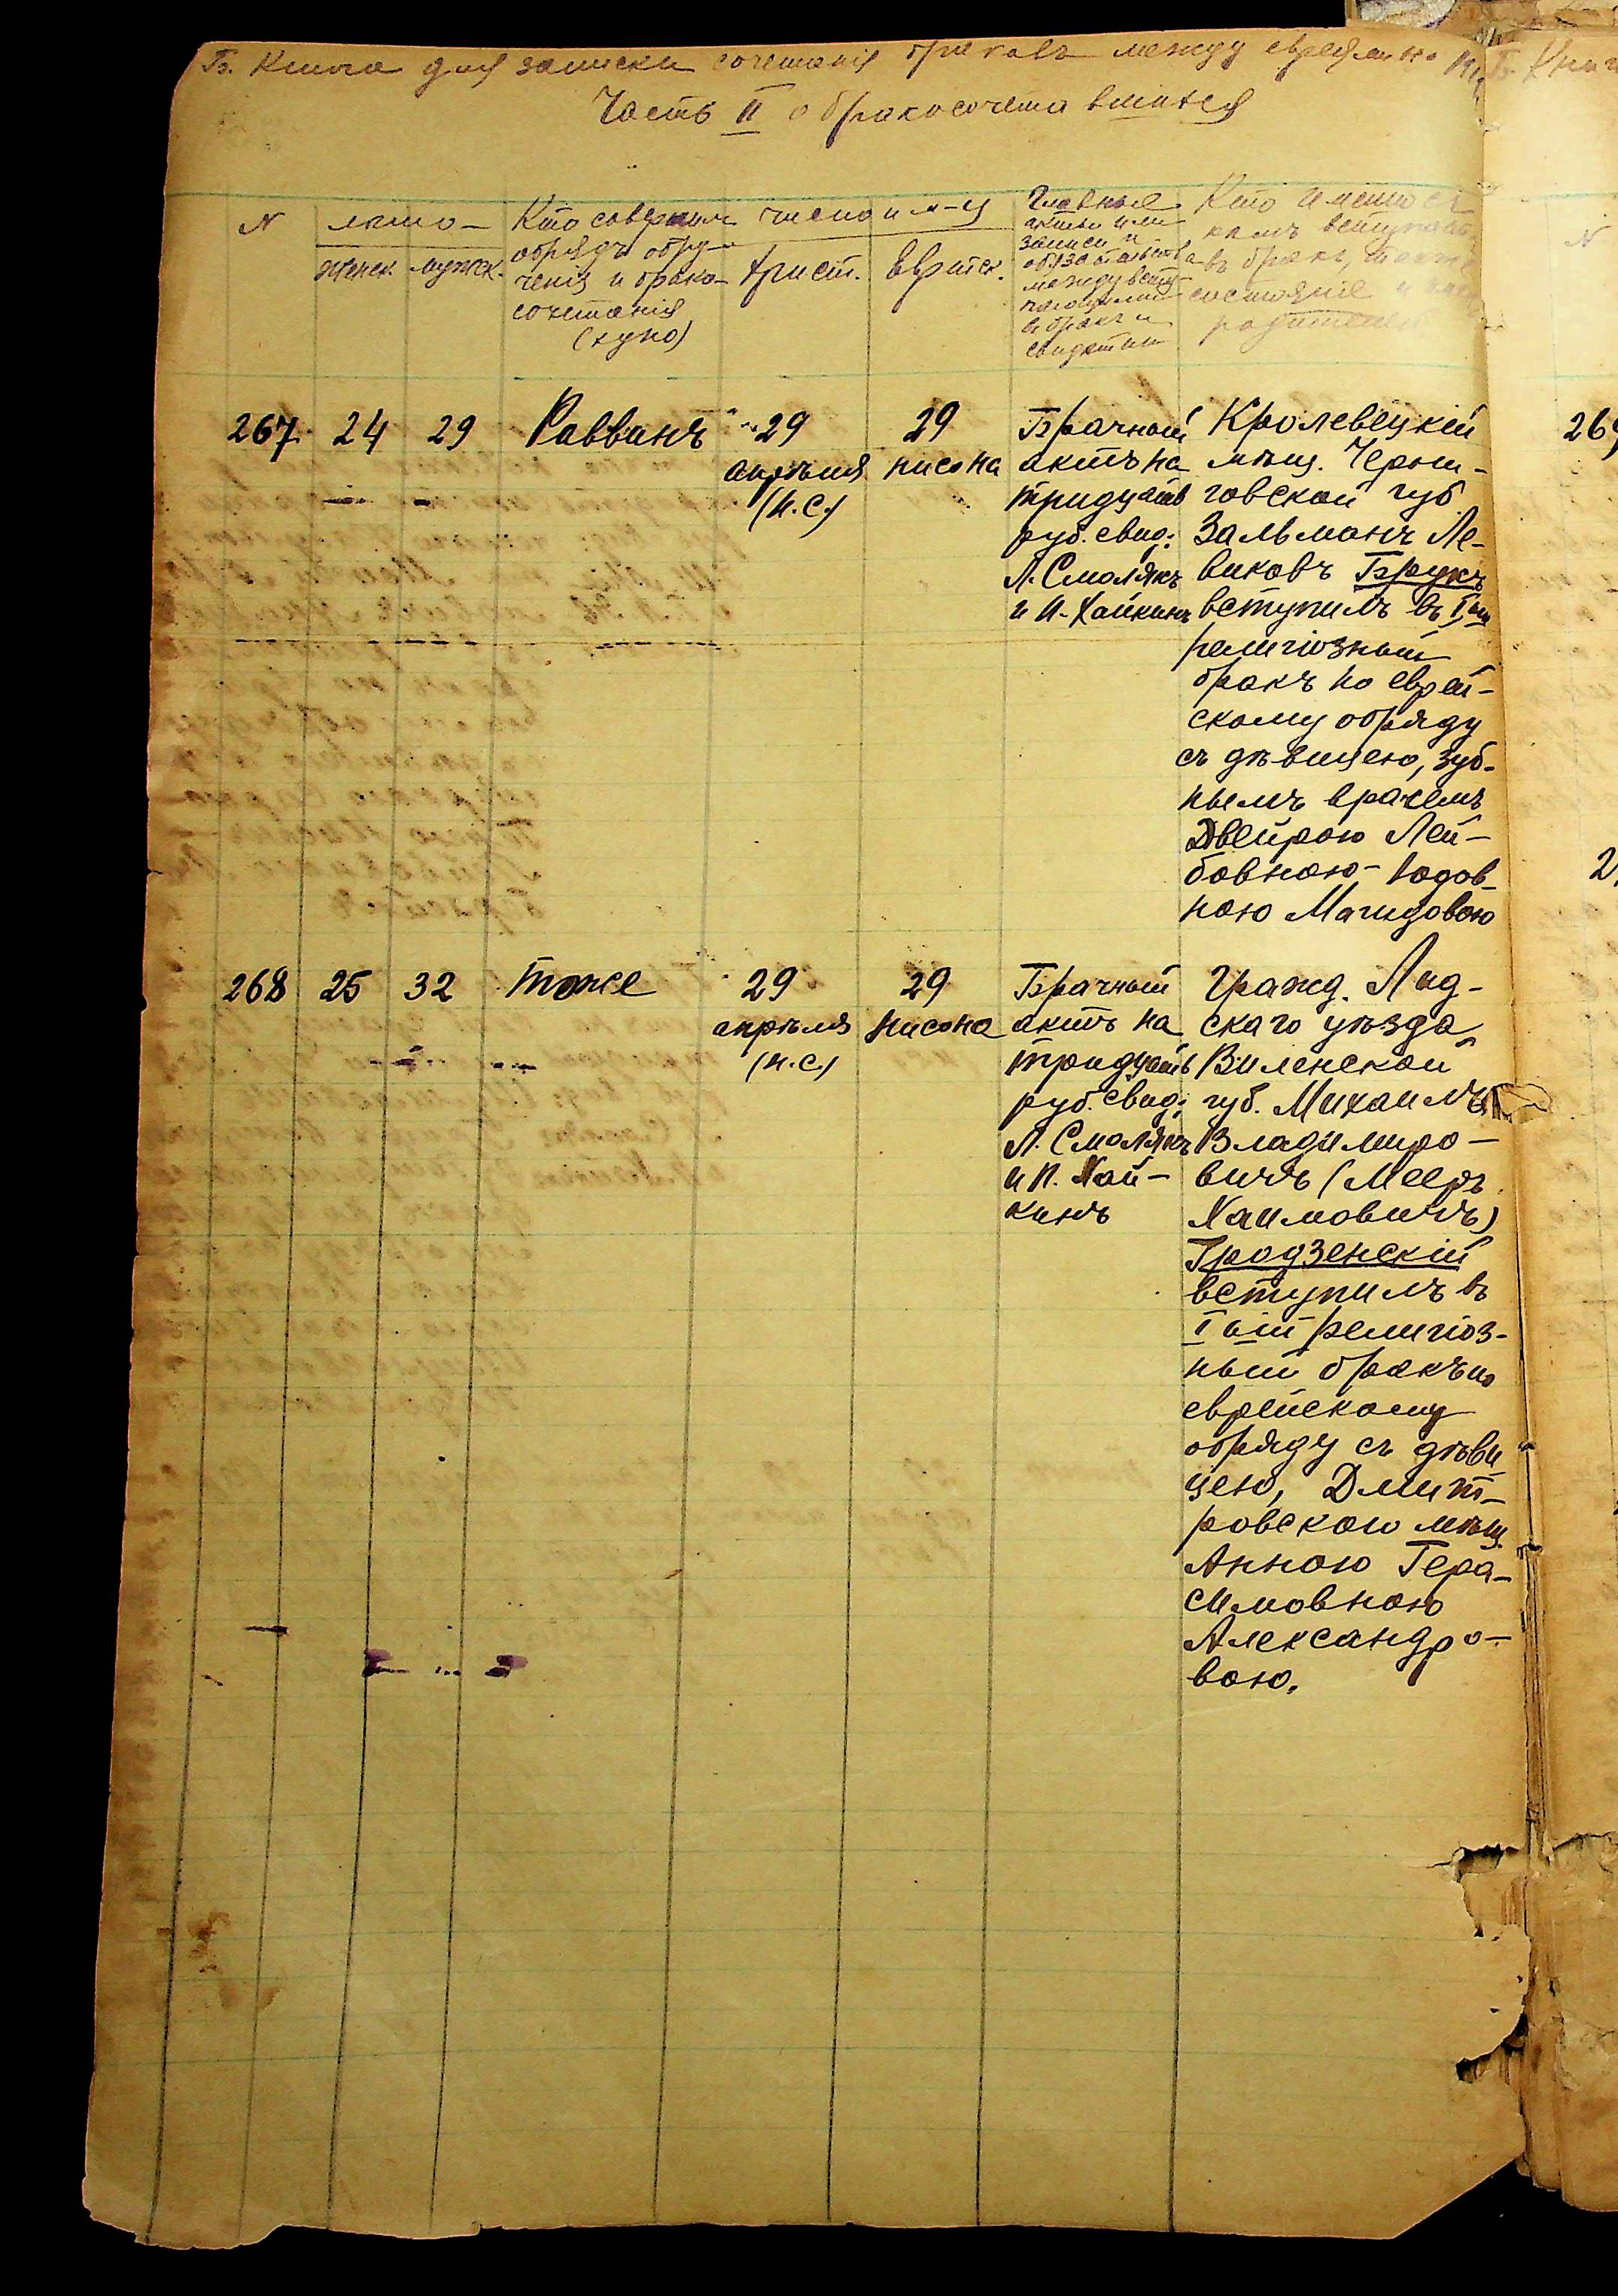 Бр. Книга для записки сочетанія браковъ между евреями на 191
Часть II о бракосочетавшихся
N
лѣта
женск. мужск.
Кто совершалъ
обрядъ обру-
ченія и брако-
сочетанія
(хупо)
число и м-ц
христ. еврейск.
Главные
акты или
записи и
обязательства
между всту-
пающими
въ бракъ и
свидѣтели
Кто именно съ
кемъ вступаетъ
въ бракъ, также
состояніе и
родителей
267. 24 29 Раввинъ 29 29
апрѣля нисона
(н.с.)
Брачный
актъ на
тридцать
руб. свид:
Л. Смолякъ
и И. Хайкинъ
Кролевецкій
мѣщ. Черни-
говской губ
Зальманъ Ле-
виковъ Брукъ
вступилъ въ Iый
религіозный
бракъ по еврей-
скому обряду
съ дѣвицею, зуб-
нымъ врачемъ
Двейрою Лей-
бовною-Юдов-
ною Магидовою
268 25 32 тоже 29 29
апрѣля нисона
(н.с.)
Брачный
актъ на
тридцать
руб. свид:
Л. Смолякъ
и И. Хай-
кинъ
Гражд. Лид-
скаго уѣзда
Виленской
губ. Михаилъ
Владимиро-
вичъ (Мееръ
Хаимовичъ)
Гродзенскій
вступилъ въ
Iый религіоз-
ный бракъ по
еврейскому
обряду съ дѣви
цею, Дмит-
ровскою мѣщ.
Анною Гера-
симовною
Александро-
вою.